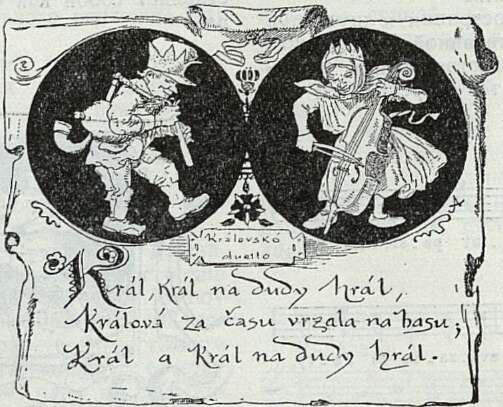 Královské
duetto
Král, Král na dudy hrál,
Králová za času vrzala na basu;
Král a Král na dudy hrál.